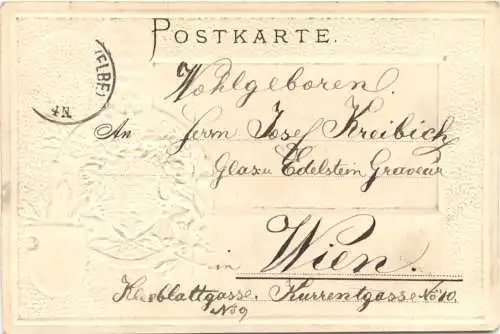 POSTKARTE.
(ELBE)
4N.
Wohlgeboren
An Herrn Josef Kreibich
Glas u Edelstein Graveur
in Wien.
Kleeblattgasse. Kurrentgasse No 10.
No 9